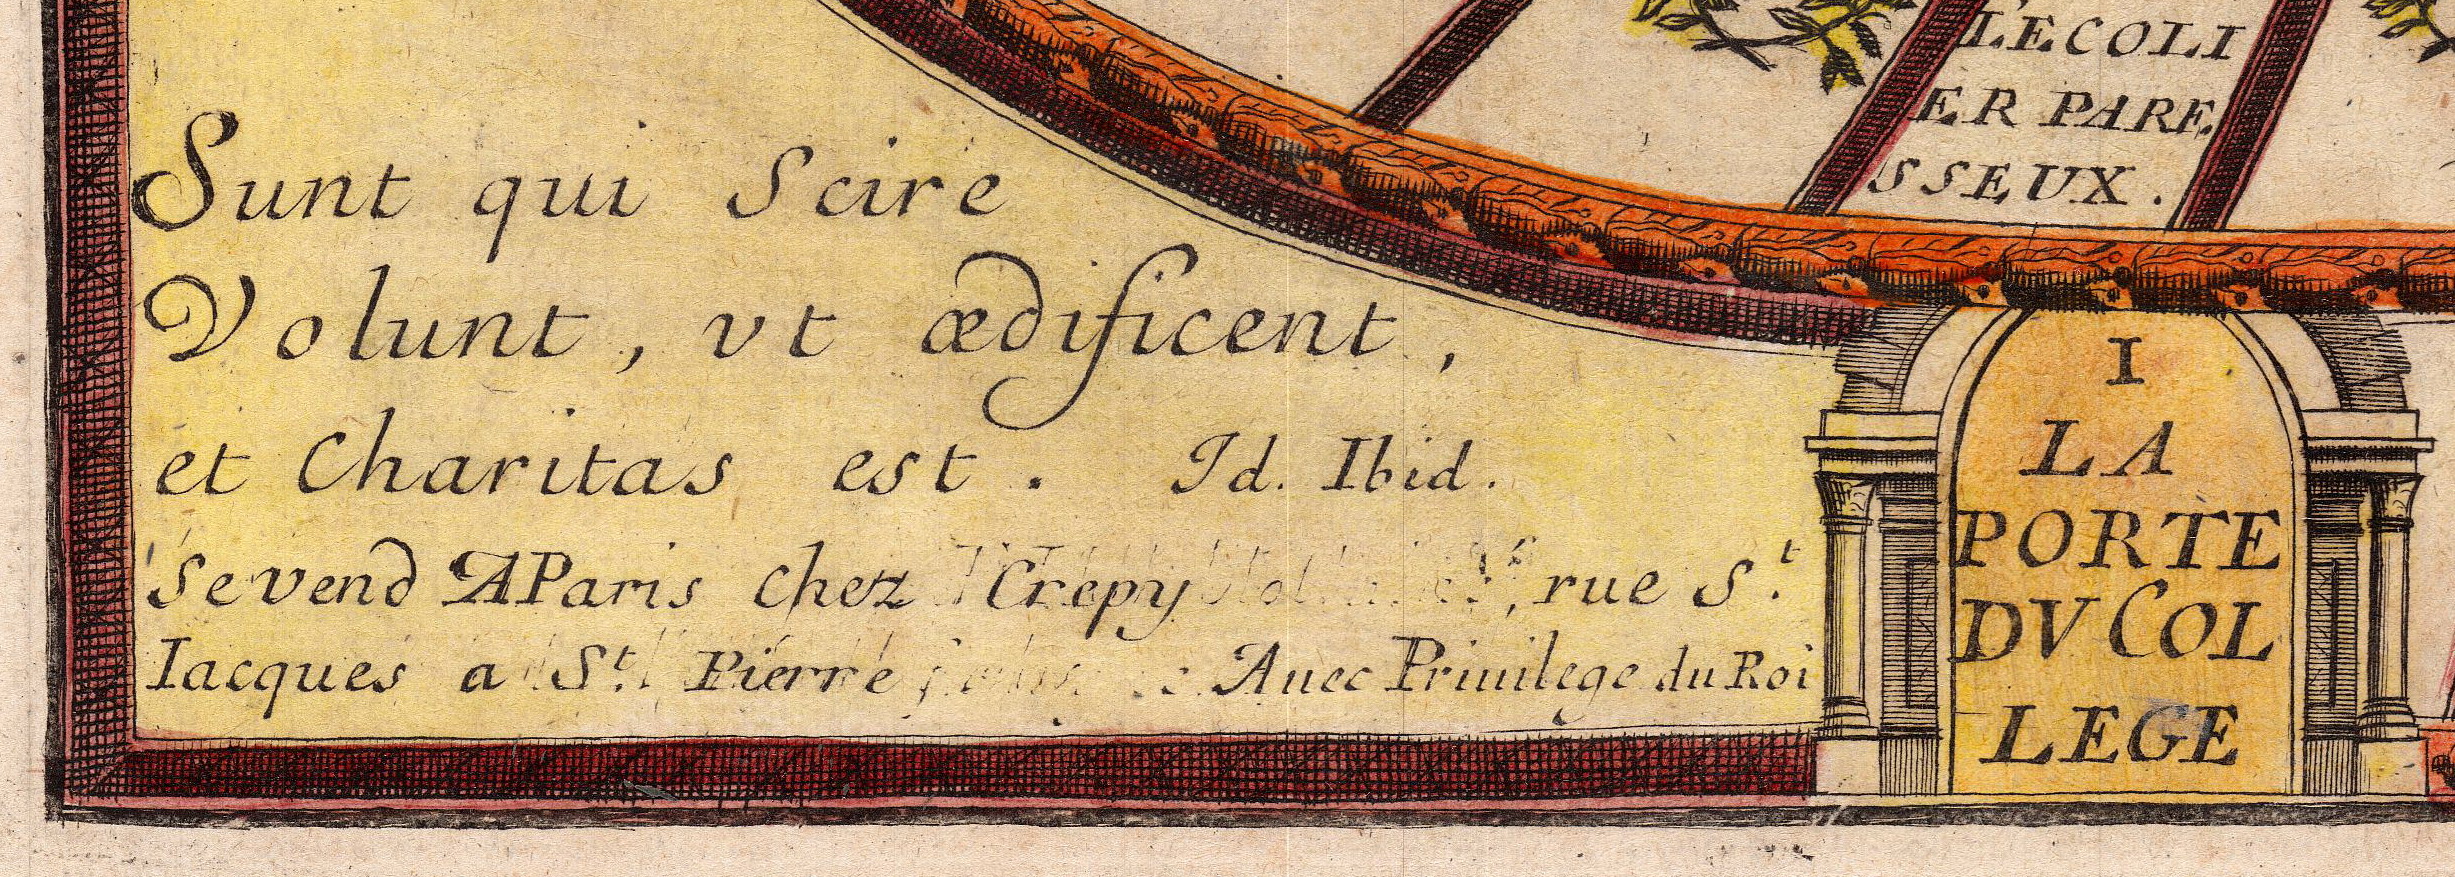 Sunt qui Scire
Volunt, vt ædificent,
et Charitas est. Id. Ibid.
Se vend A Paris chez Crepy rue S.t
Iacques a St. Pierre Auec Priuilege du Roi
L'ECOLI
ER PARE
SSEUX.
I
LA
PORTE
DV COL
LEGE